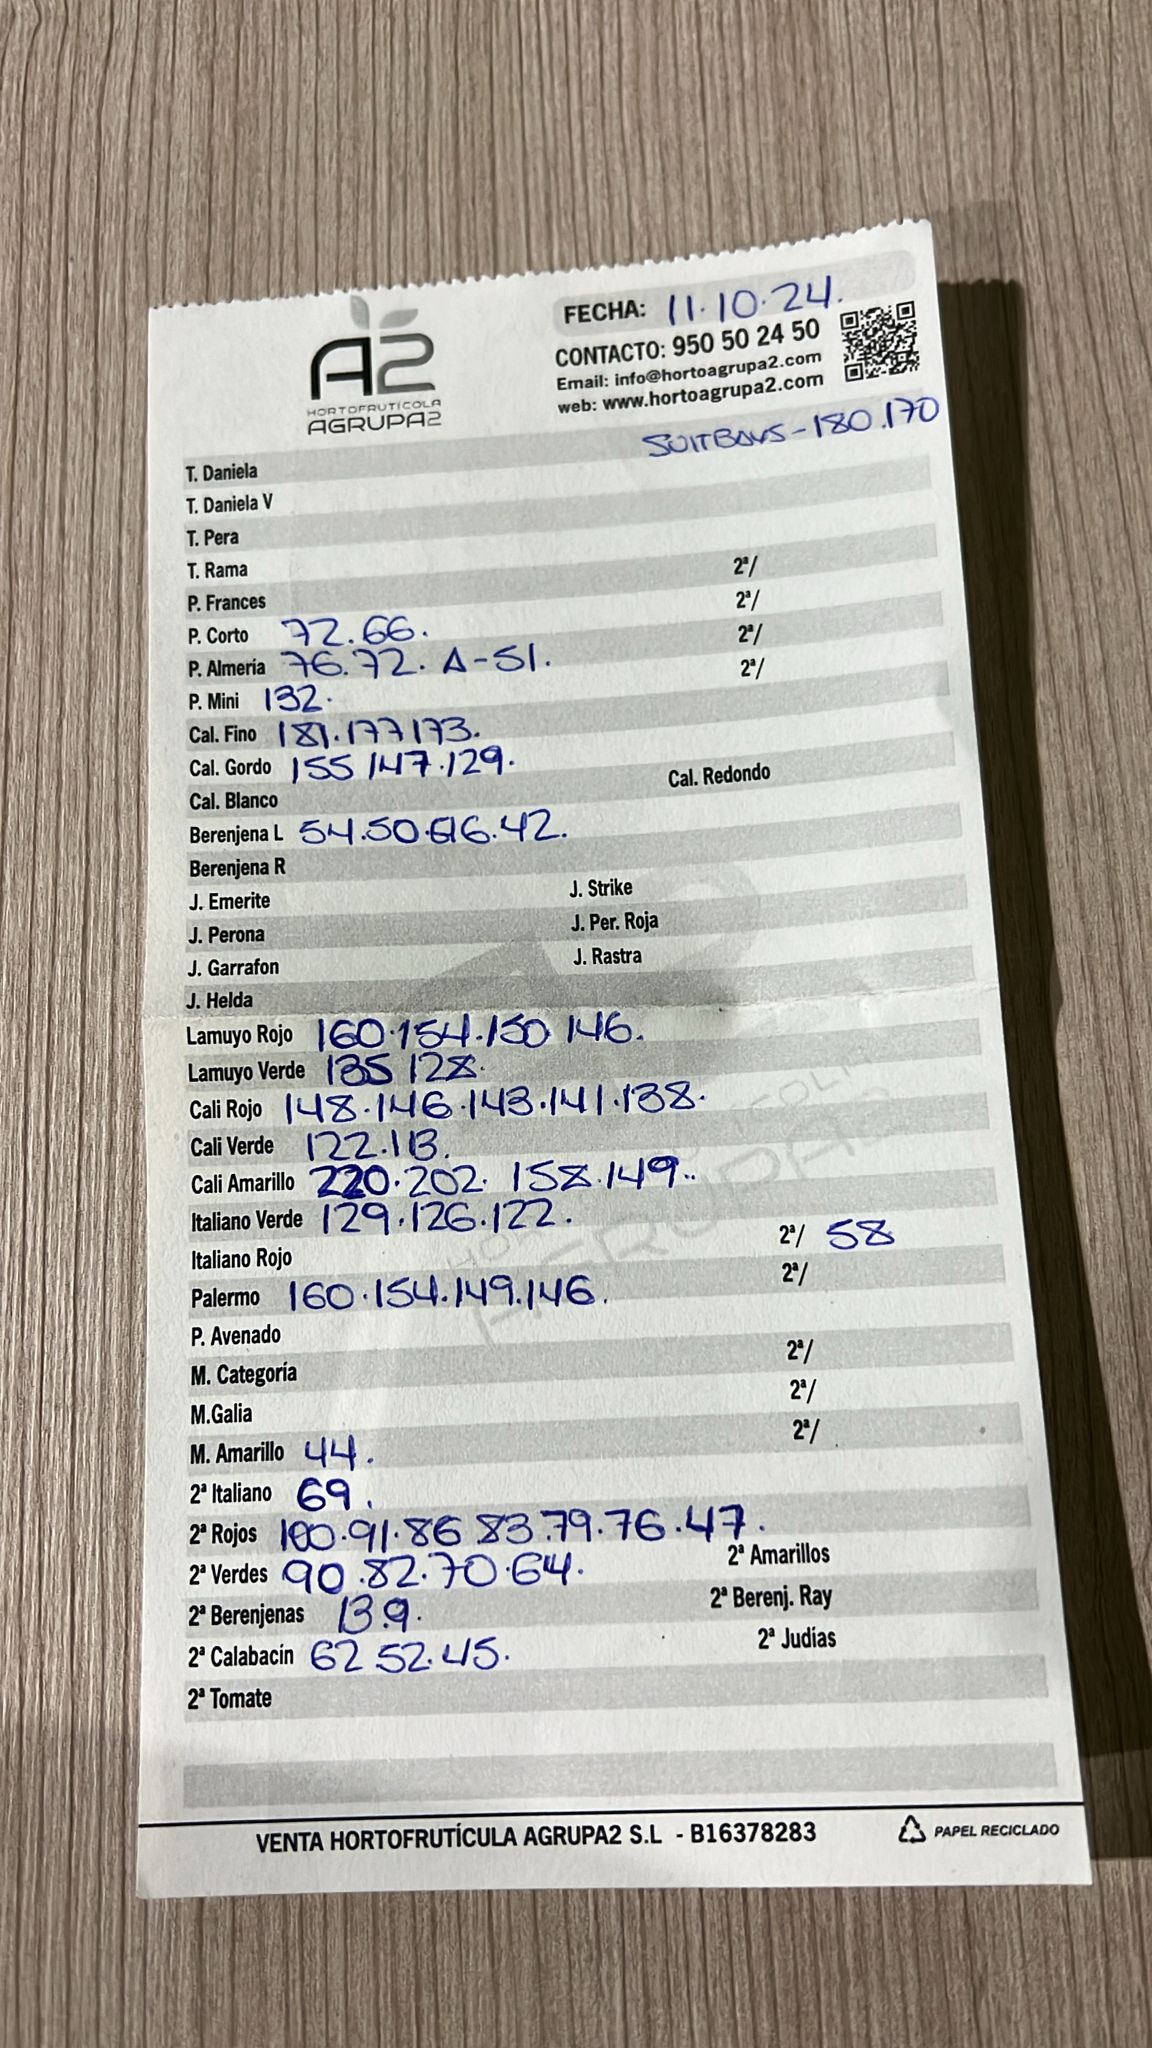 A2
HORTOFRUTÍCOLA
AGRUPA2
FECHA: 11.10.24.
CONTACTO: 950 50 24 50
Email: info@hortoagrupa2.com
web: www.hortoagrupa2.com
SUITBOYS-180.170
T. Daniela
T. Daniela V
T. Pera
T. Rama 2ª/
P. Frances 2ª/
P. Corto 72.66. 2ª/
P. Almería 76.72. A-51. 2ª/
P. Mini 132.
Cal. Fino 181.177 173.
Cal. Gordo 155 147.129.
Cal. Blanco Cal. Redondo
Berenjena L 54.50. 42.
Berenjena R
J. Emerite J. Strike
J. Perona J. Per. Roja
J. Garrafon J. Rastra
J. Helda
Lamuyo Rojo 160.154.150 146.
Lamuyo Verde 135 128.
Cali Rojo 148.146.143.141.138.
Cali Verde 122.113.
Cali Amarillo 220.202. 158.149..
Italiano Verde 129.126.122.
Italiano Rojo 2ª/ 58
Palermo 160.154.149.146. 2ª/
P. Avenado
M. Categoría 2ª/
M.Galia 2ª/
M. Amarillo 44. 2ª/
2ª Italiano 69.
2ª Rojos 100.91.86 83.79.76.47.
2ª Verdes 90.82.70.64. 2ª Amarillos
2ª Berenjenas 13.9. 2ª Berenj. Ray
2ª Calabacín 62 52.45. 2ª Judías
2ª Tomate
VENTA HORTOFRUTÍCULA AGRUPA2 S.L - B16378283
PAPEL RECICLADO